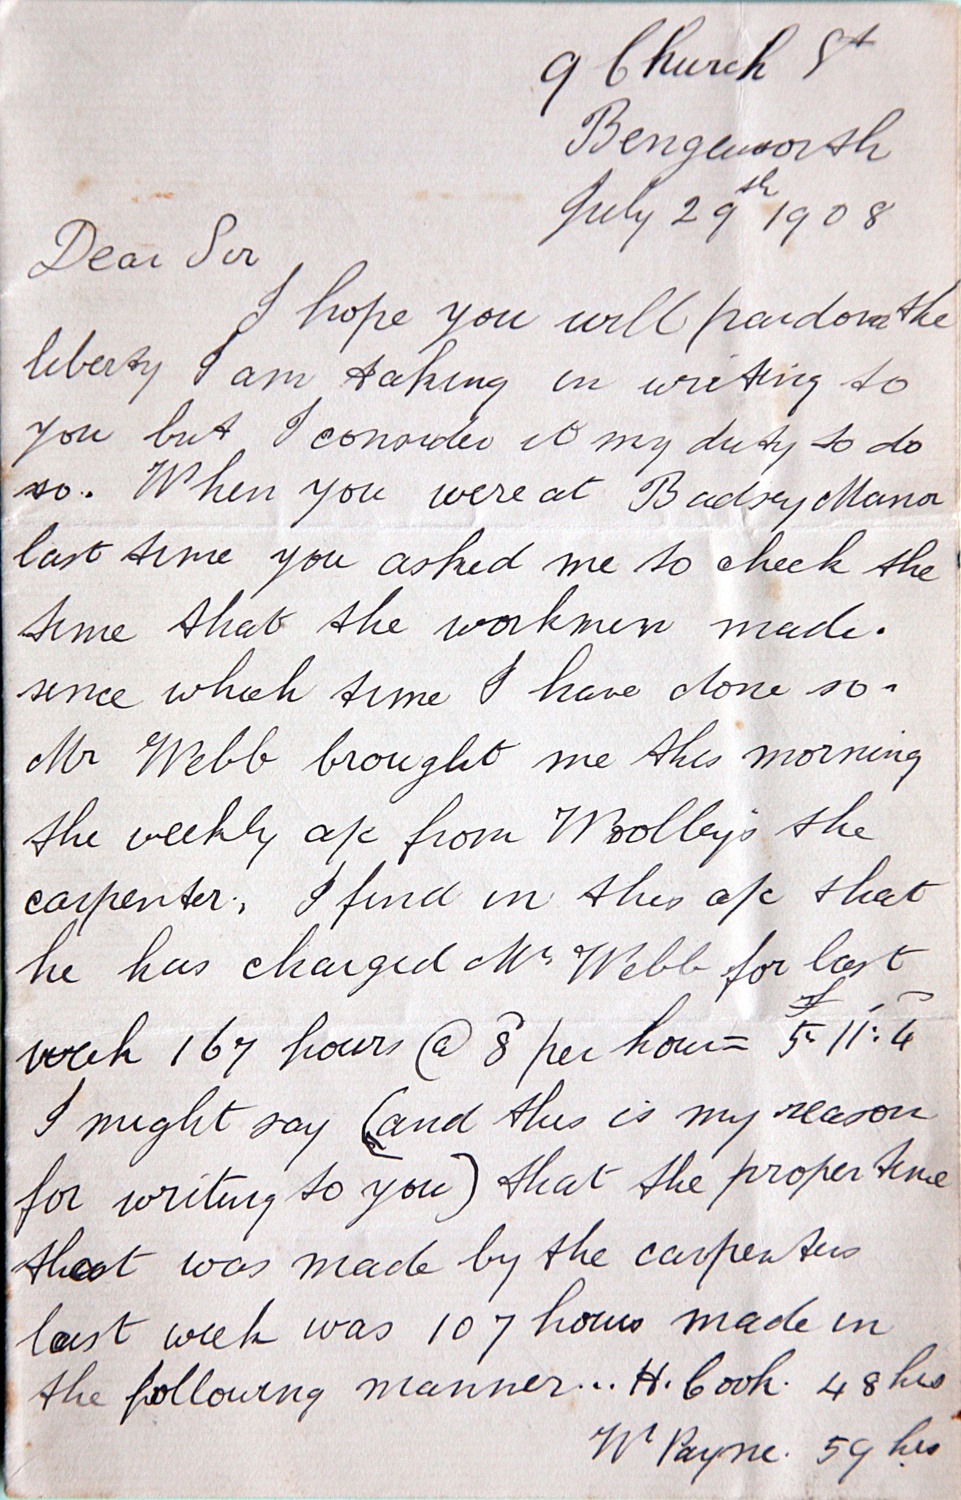 9 Church St
Bengeworth
July 29th 1908
Dear Sir
I hope you will pardon the
liberty I am taking in writing to
you but I consider it my duty to do
so. When you were at Badsey Manor
last time you asked me to check the
time that the workmen made.
since which time I have done so.
Mr Webb brought me this morning
the weekly a/c from Woolley's the
carpenter., I find in this a/c that
he has charged Mr Webb for last
week 167 hours @ 8d per hour = £5 11: 4d
I might say (and this is my reason
for writing to you) that the proper time
that was made by the carpenters
last week was 107 hours made in
the following manner... H. Cook. 48 hrs
Wm Payne. 59 hrs